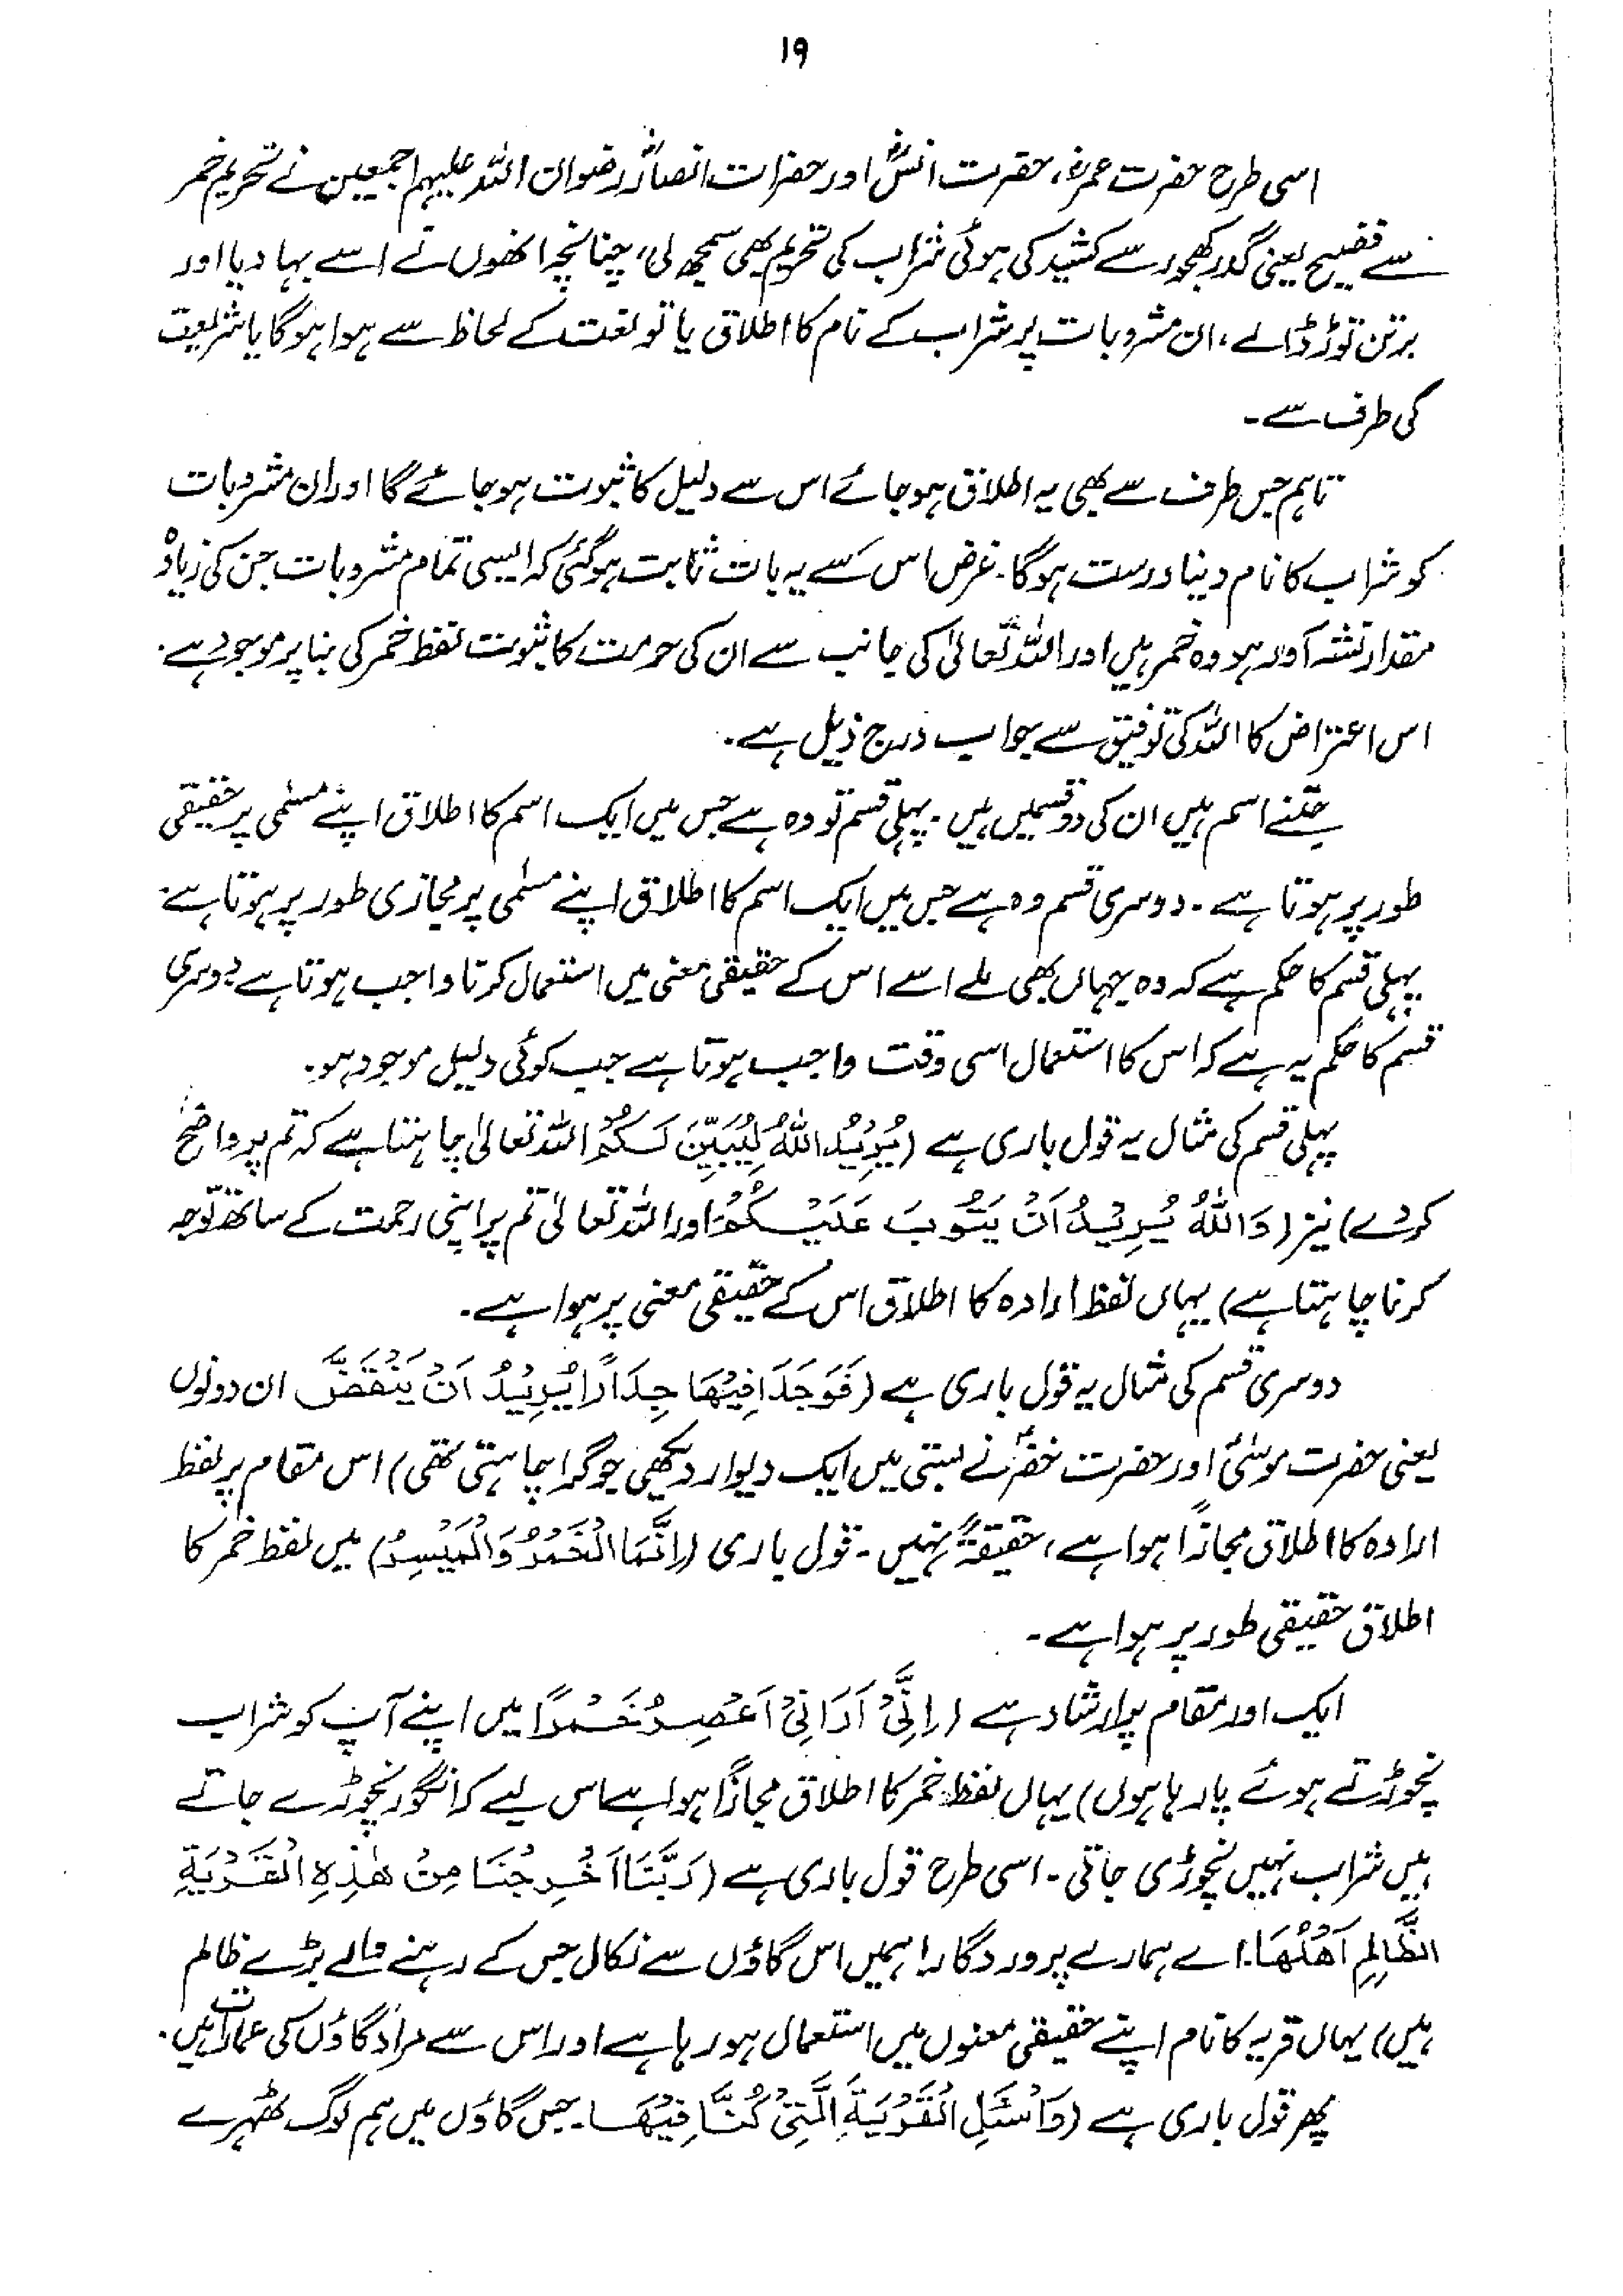 ۱۹
اسی طرح حضرت عمرؓ، حضرت انسؓ اور حضرات انصارؓ رضوان اللہ علیہم اجمعین نے تحریم خمر
سے فضیح یعنی گدر کھجور سے کشید کی ہوئی شراب کی تحریم بھی سمجھ لی، چنانچہ انھوں نے اسے بہا دیا اور
برتن توڑ ڈالے، ان مشروبات پر شراب کے نام کا اطلاق یا تو لغت کے لحاظ سے ہوا ہوگا یا شریعت
کی طرف سے۔
تاہم جس طرف سے بھی یہ اطلاق ہو جائے اس سے دلیل کا ثبوت ہو جائے گا اور ان مشروبات
کو شراب کا نام دینا درست ہوگا۔ غرض اس سے یہ بات ثابت ہوگئی کہ ایسی تمام مشروبات جن کی زیادہ
مقدار نشہ آور ہو وہ خمر ہیں اور اللہ تعالیٰ کی جانب سے ان کی حرمت کا ثبوت لفظ خمر کی بنا پر موجود ہے۔
اس اعتراض کا اللہ کی توفیق سے جواب درج ذیل ہے۔
جتنے اسم ہیں ان کی دو قسمیں ہیں۔ پہلی قسم تو وہ ہے جس میں ایک اسم کا اطلاق اپنے مسمّٰی پر حقیقی
طور پر ہوتا ہے۔ دوسری قسم وہ ہے جس میں ایک اسم کا اطلاق اپنے مسمّٰی پر مجازی طور پر ہوتا ہے۔
پہلی قسم کا حکم ہے کہ وہ جہاں بھی ملے اسے اس کے حقیقی معنی میں استعمال کرنا واجب ہوتا ہے دوسری
قسم کا حکم یہ ہے کہ اس کا استعمال اسی وقت واجب ہوتا ہے جب کوئی دلیل موجود ہو۔
پہلی قسم کی مثال یہ قول باری ہے (يُرِيْدُ اللّٰهُ لِيُبَيِّنَ لَكُمْ اللہ تعالیٰ چاہتا ہے کہ تم پر واضح
کردے) نیز (وَاللّٰهُ يُرِيْدُ اَنْ يَتُوْبَ عَلَيْكُمْ اور اللہ تعالیٰ تم پر اپنی رحمت کے ساتھ توجہ
کرنا چاہتا ہے) یہاں لفظ ارادہ کا اطلاق اس کے حقیقی معنی پر ہوا ہے۔
دوسری قسم کی مثال یہ قول باری ہے (فَوَجَدَا فِيْهَا جِدَارًا يُرِيْدُ اَنْ يَنْقَضَّ ان دونوں
یعنی حضرت موسیٰؑ اور حضرت خضرؑ نے بستی میں ایک دیوار دیکھی جو گرا چاہتی تھی) اس مقام پر لفظ
ارادہ کا اطلاق مجازاً ہوا ہے، حقیقۃً نہیں۔ قول باری (اِنَّمَا الْخَمْرُ وَالْمَيْسِرُ) میں لفظ خمر کا
اطلاق حقیقی طور پر ہوا ہے۔
ایک اور مقام پر ارشاد ہے (اِنِّیْ اَرَانِیْ اَعْصِرُ خَمْرًا میں اپنے آپ کو شراب
نچوڑتے ہوئے پا رہا ہوں) یہاں لفظ خمر کا اطلاق مجازاً ہوا ہے اس لیے کہ انگور نچوڑے جاتے
ہیں شراب نہیں نچوڑی جاتی۔ اسی طرح قول باری ہے (رَبَّنَا اَخْرِجْنَا مِنْ هٰذِهِ الْقَرْيَةِ
الظَّالِمِ اَهْلُهَا۔ اے ہمارے پروردگار! ہمیں اس گاؤں سے نکال جس کے رہنے والے بڑے ظالم
ہیں) یہاں قریہ کا نام اپنے حقیقی معنوں میں استعمال ہو رہا ہے اور اس سے مراد گاؤں کی عمارات ہیں۔
پھر قول باری ہے (وَاسْئَلِ الْقَرْيَةَ الَّتِیْ كُنَّا فِيْهَا۔ جس گاؤں میں ہم لوگ ٹھہرے